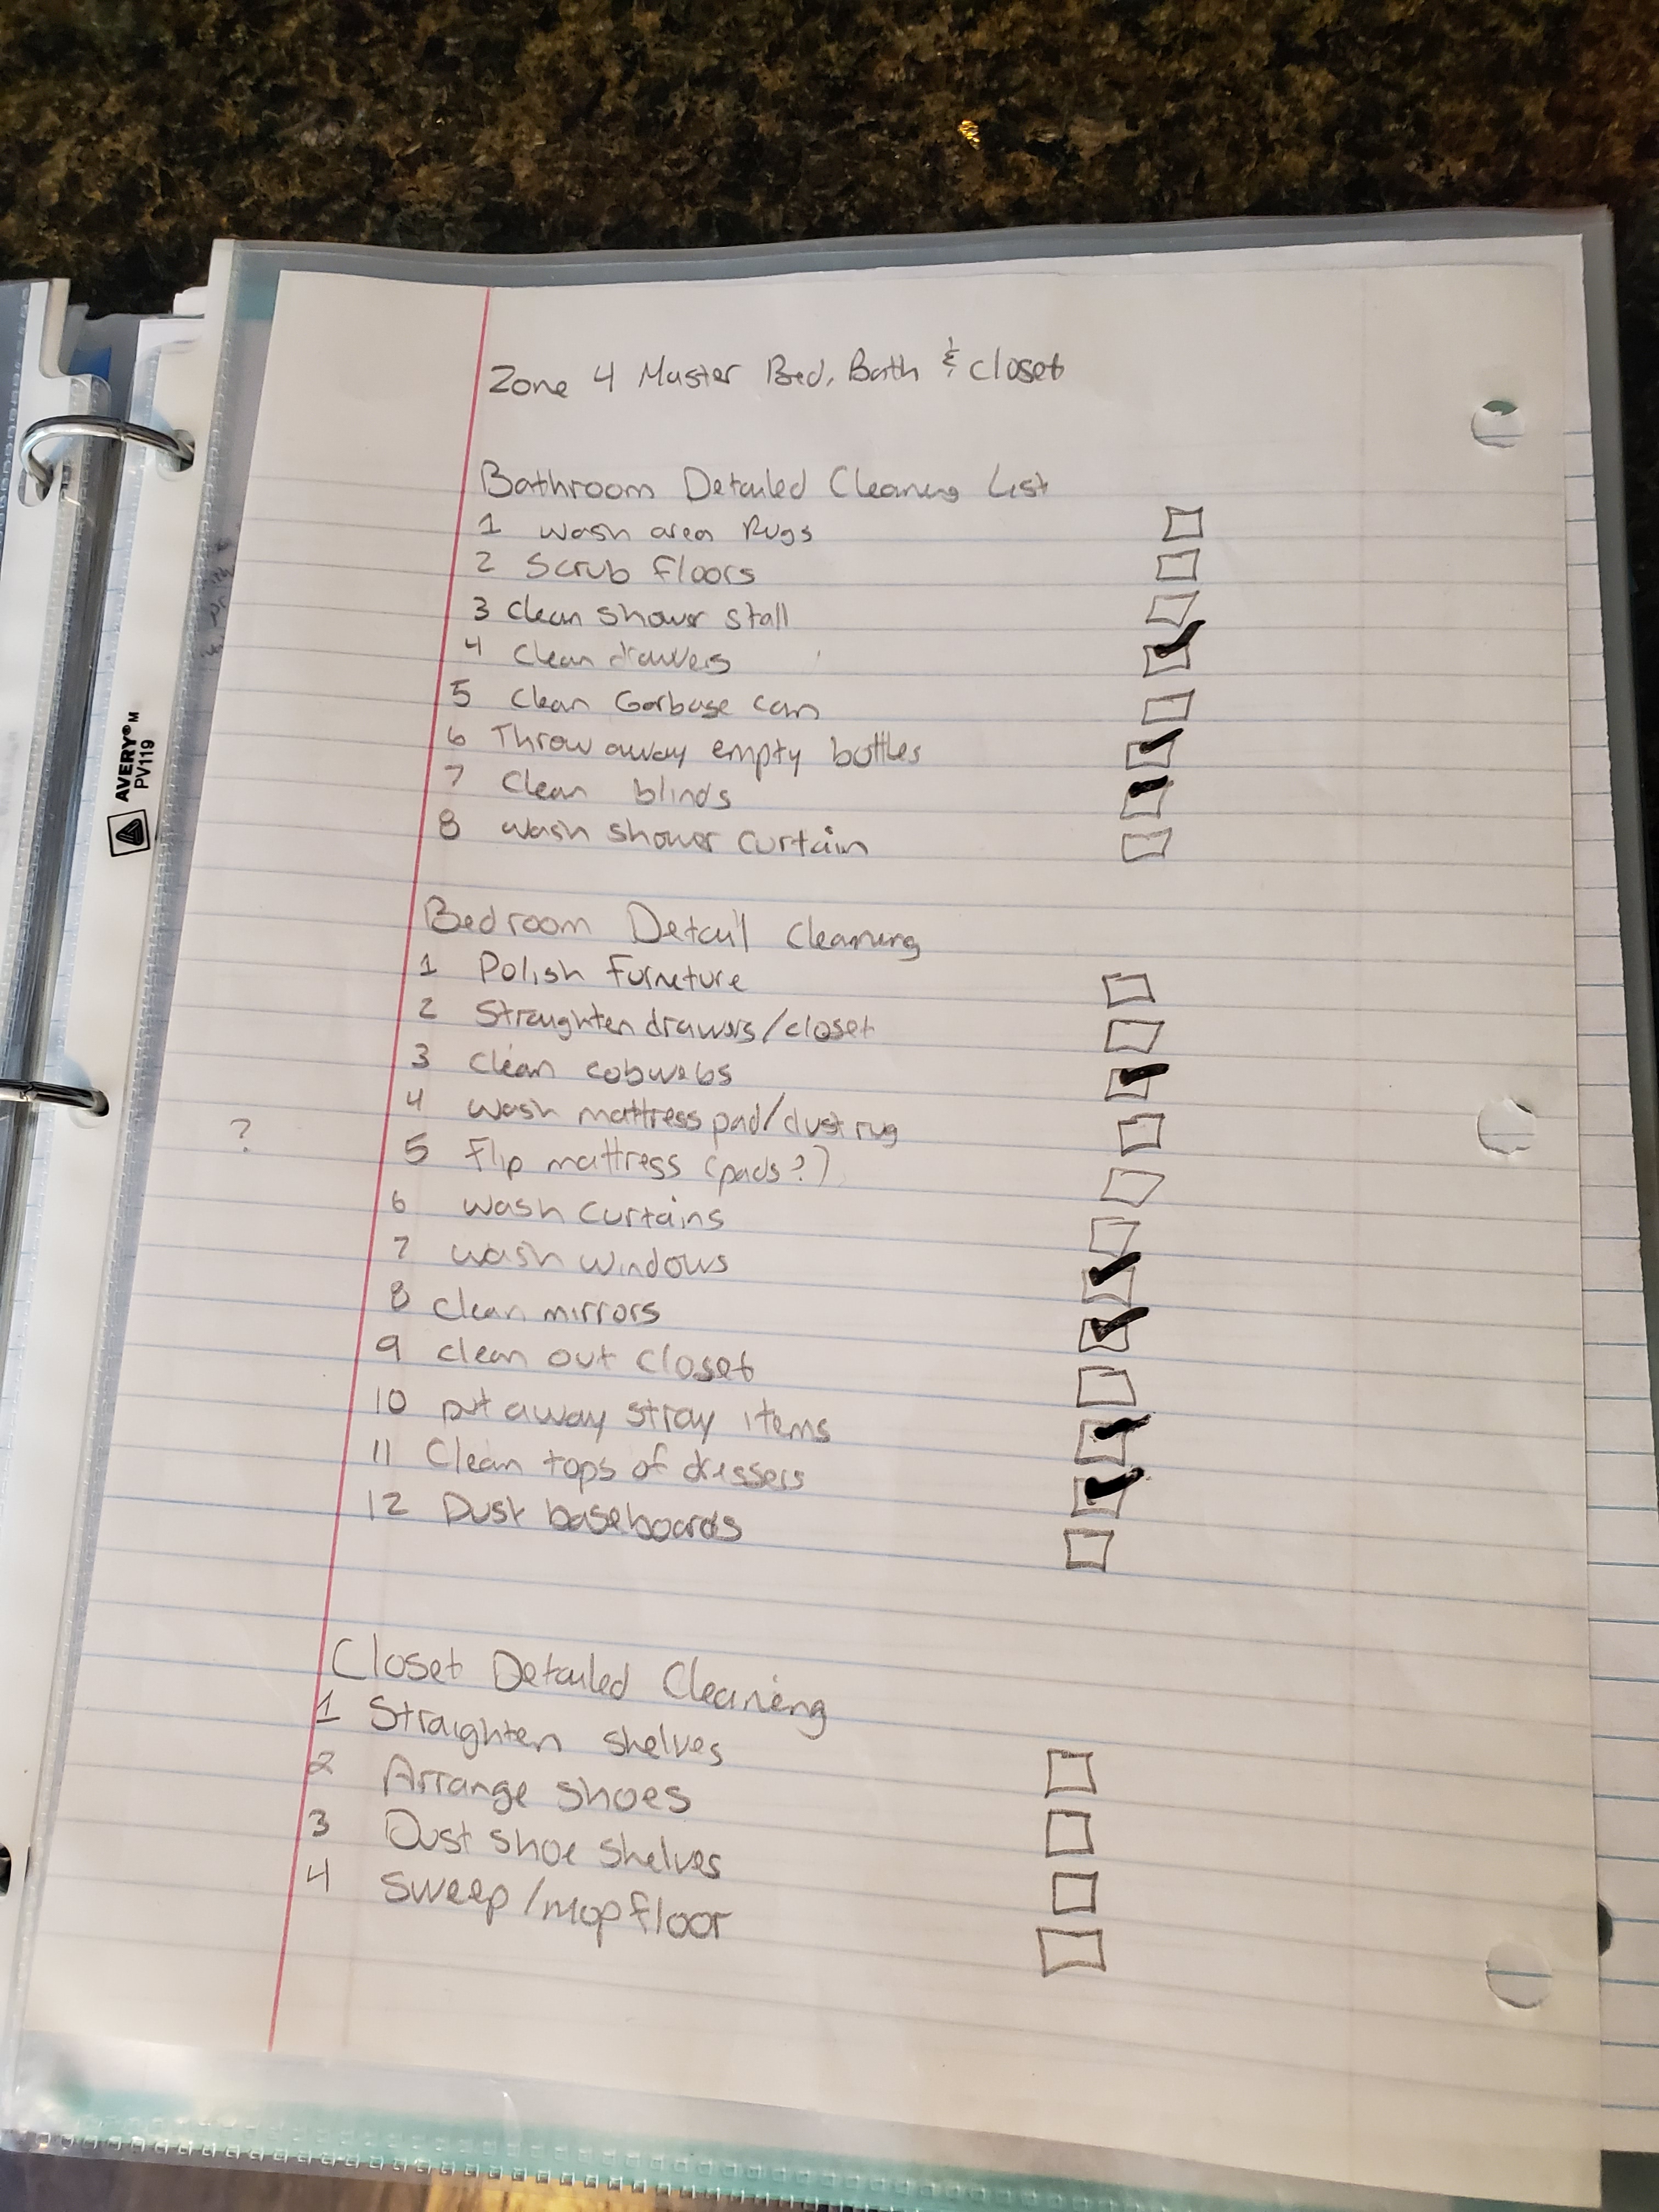 Zone 4 Master Bed, Bath & closet
Bathroom Detailed Cleaning List
1 wash area Rugs
2 Scrub floors
3 clean shower stall
4 clean drawers
5 clean Garbage can
6 Throw away empty bottles
7 Clean blinds
8 wash shower curtain
Bedroom Detail Cleaning
1 Polish Furneture
2 Straughten drawers/closet
3 clean cobwebs
4 wash mattress pad/dust rug
? 5 Flip mattress (pads?)
6 wash curtains
7 wash windows
8 clean mirrors
9 clean out closet
10 put away stray items
11 Clean tops of dressers
12 Dust baseboards
Closet Detailed Cleaning
1 Straighten shelves
2 Arrange shoes
3 Dust shoe shelves
4 Sweep/mop floor
AVERY®M
PV119